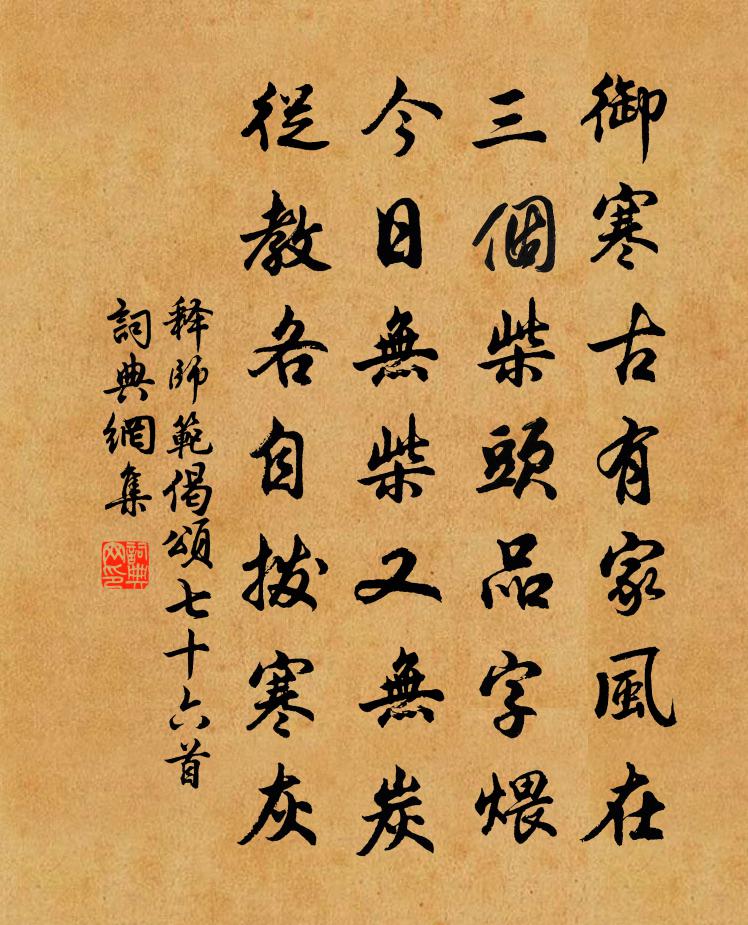 御寒古有家風在
三個柴頭品字煨
今日無柴又無炭
從教各自撥寒灰
释師範偈頌七十六首
詞典網集
詞典網印